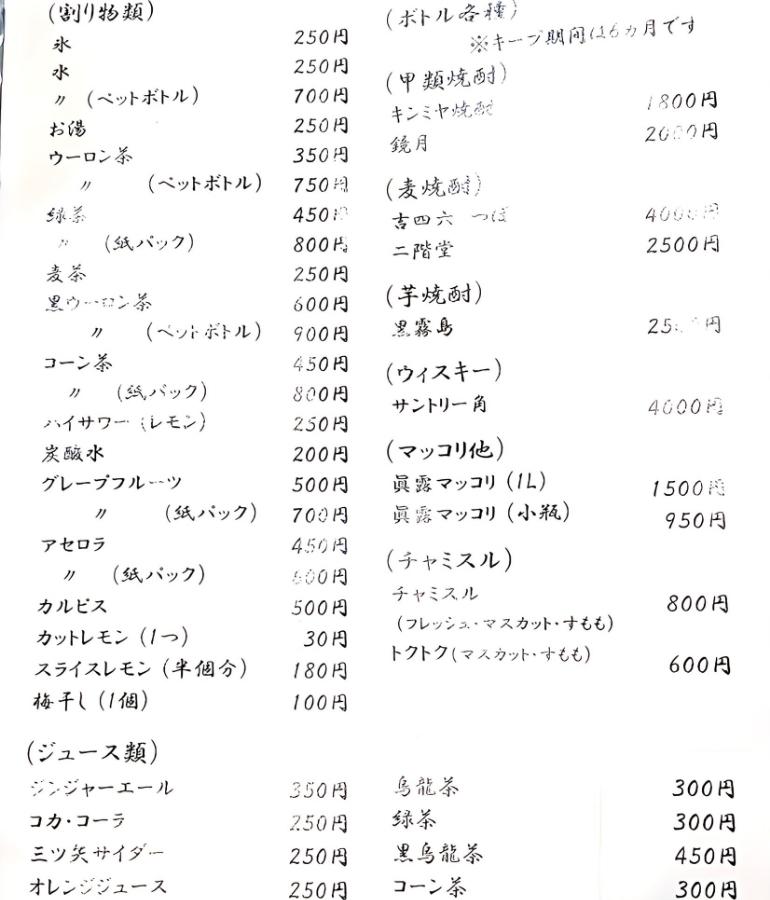 (割り物類)
氷 250円
水 250円
〃 (ペットボトル) 700円
お湯 250円
ウーロン茶 350円
〃 (ペットボトル) 750円
緑茶 450円
〃 (紙パック) 800円
麦茶 250円
黒ウーロン茶 600円
〃 (ペットボトル) 900円
コーン茶 450円
〃 (紙パック) 800円
ハイサワー (レモン) 250円
炭酸水 200円
グレープフルーツ 500円
〃 (紙パック) 700円
アセロラ 450円
〃 (紙パック) 600円
カルピス 500円
カットレモン (1つ) 30円
スライスレモン (半個分) 180円
梅干し (1個) 100円
(ボトル各種)
※キープ期間は6ヵ月です
(甲類焼酎)
キンミヤ焼酎 1800円
鏡月 2000円
(麦焼酎)
吉四六 つぼ 4000円
二階堂 2500円
(芋焼酎)
黒霧島 円
(ウィスキー)
サントリー角 4000円
(マッコリ他)
眞露マッコリ (1L) 1500円
眞露マッコリ (小瓶) 950円
(チャミスル)
チャミスル 800円
(フレッシュ・マスカット・すもも)
トクトク(マスカット・すもも) 600円
(ジュース類)
ジンジャーエール 350円
コカ・コーラ 250円
三ツ矢サイダー 250円
オレンジジュース 250円
烏龍茶 300円
緑茶 300円
黒烏龍茶 450円
コーン茶 300円